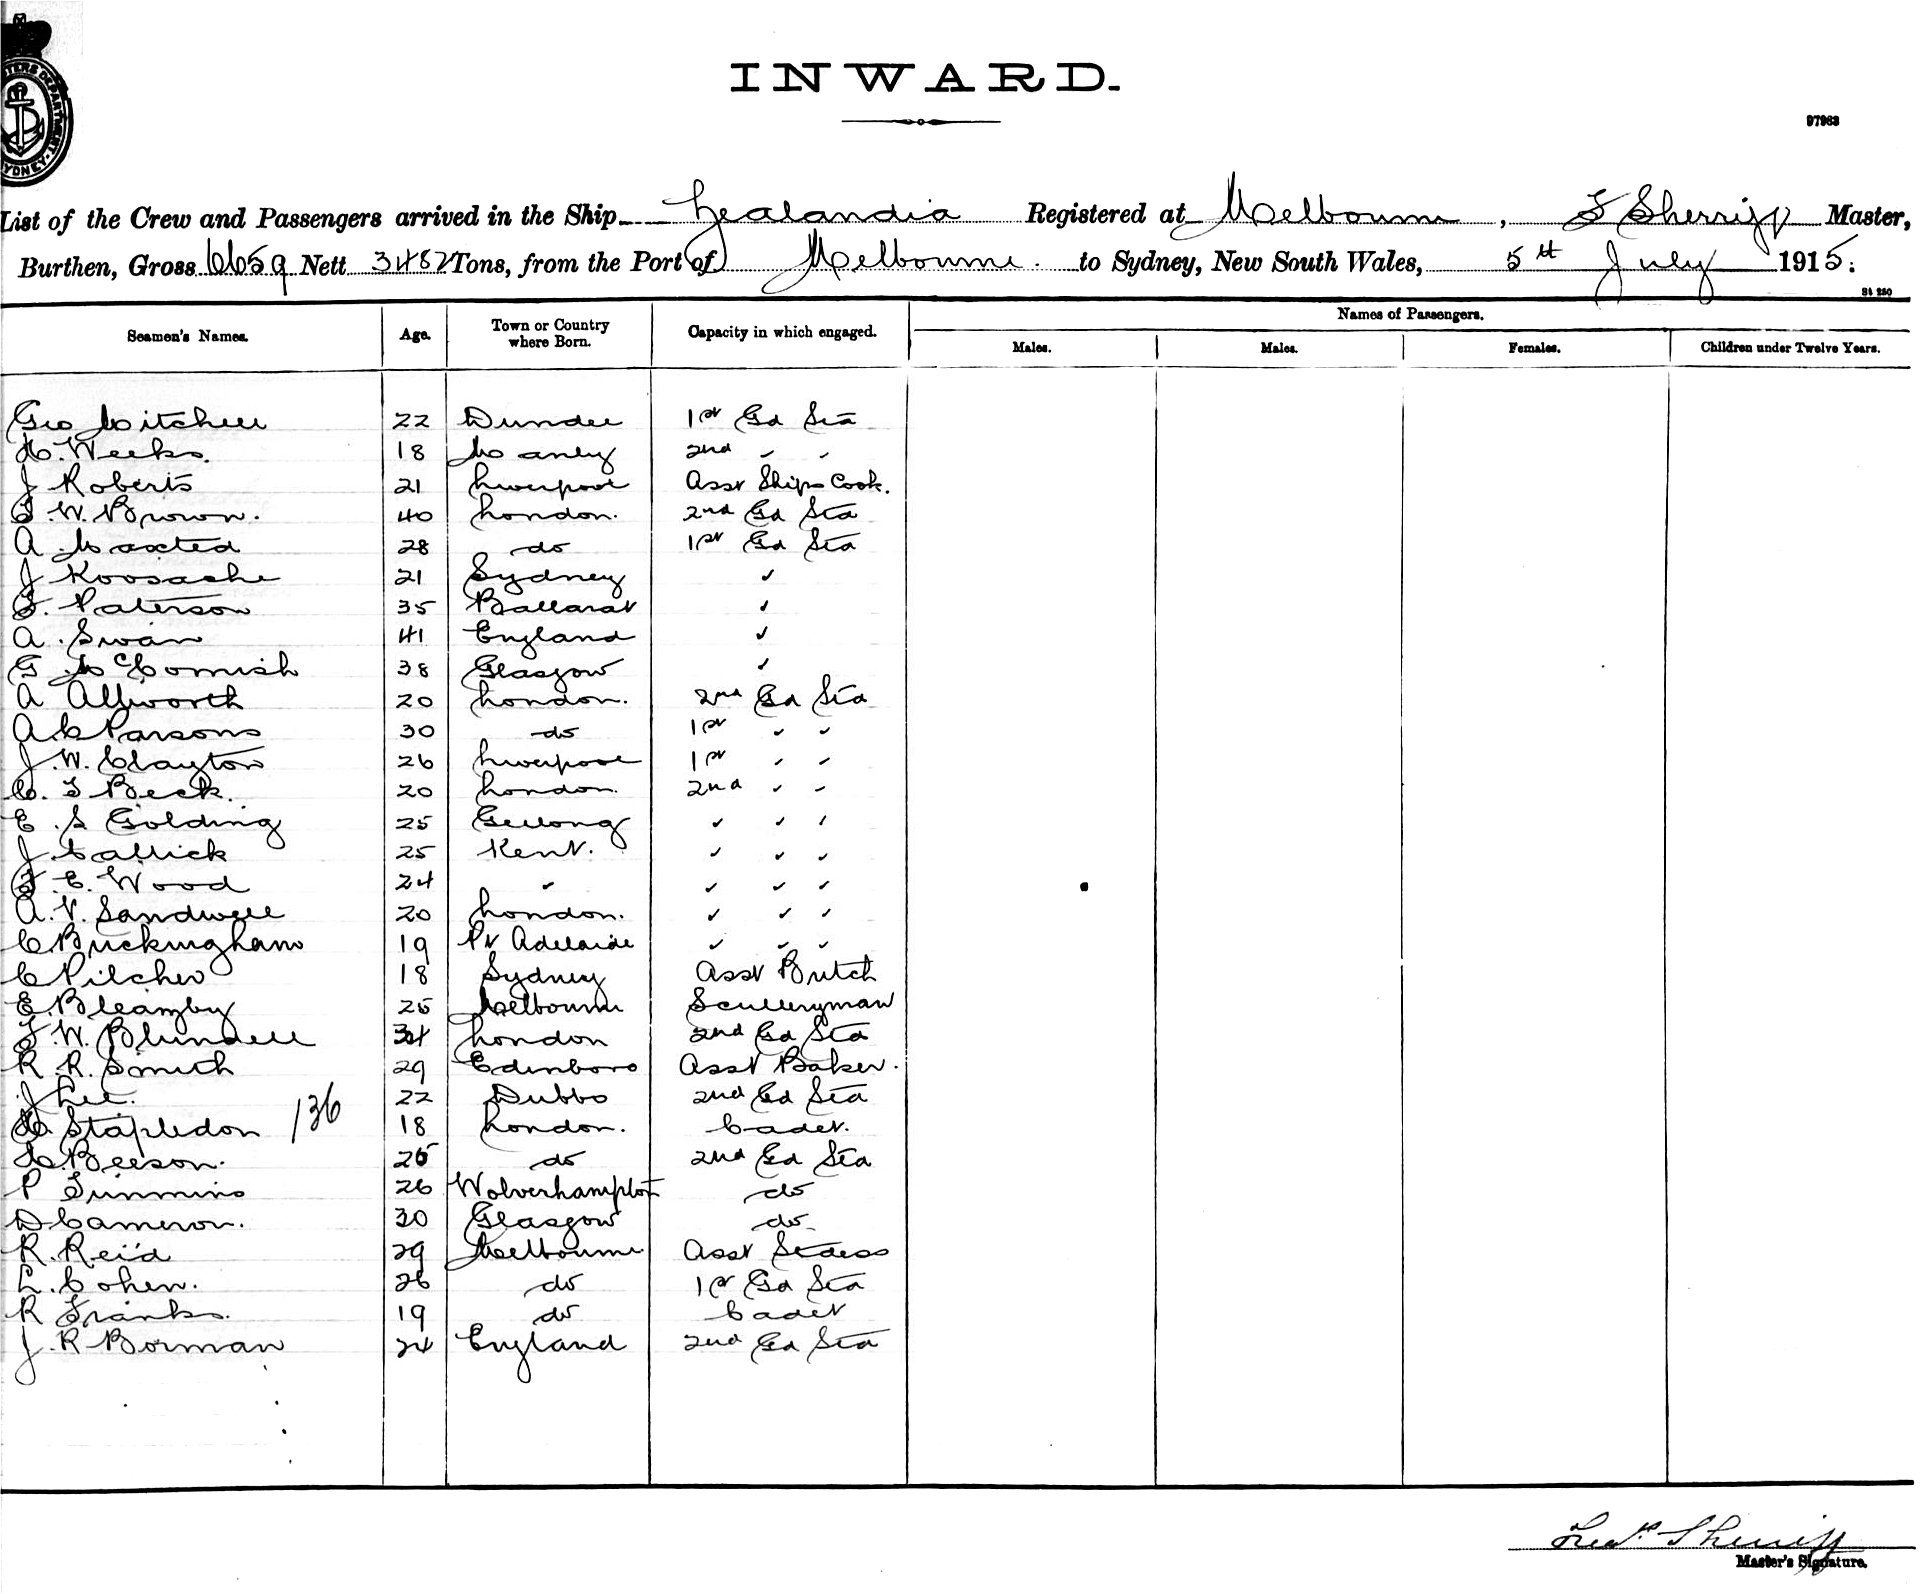 INWARD.
97963
List of the Crew and Passengers arrived in the Ship Zealandia Registered at Melbourne, F Sherriff Master,
Burthen, Gross 6659 Nett 3482 Tons, from the Port of Melbourne. to Sydney, New South Wales, 5th July 1915.
St 250
Seamen's Names. Age. Town or Country where Born. Capacity in which engaged. Names of Passengers.
Males. Males. Females. Children under Twelve Years.
Geo Mitchell 22 Dundee 1st Gd Sta
H. Weeks. 18 Manly 2nd " "
J Roberts 21 Liverpool Asst Ships Cook.
F. W. Brown. 40 London. 2nd Gd Sta
A Maxted 28 do 1st Gd Sta
J Koosache 21 Sydney "
F. Paterson 35 Ballarat "
A. Swan 41 England "
G McComish 38 Glasgow "
A Allworth 20 London. 2nd Gd Sta
A C Parsons 30 do 1st " "
J. W. Clayton 26 Liverpool 1st " "
C. F Beck. 20 London. 2nd " "
E. S Golding 25 Geelong " " "
J Callick 25 Kent. " " "
F. E. Wood 24 " " " "
A. V. Sandwell 20 London. " " "
C Buckingham 19 Pt Adelaide " " "
C Pilcher 18 Sydney Asst Butch
E. Bleazby 25 Melbourne Sculleryman
F. W. Blundell 34 London 2nd Gd Sta
R. R. Smith 29 Edinboro Asst Baker.
J Lee. 22 Dubbo 2nd Gd Sta
H. Stapledon 136 18 London. Cadet.
H. Beeson. 25 do 2nd Gd Sta
P Timmins 26 Wolverhampton do
D Cameron. 30 Glasgow do
R. Reid 29 Melbourne Asst Stdess
L. Cohen. 26 do 1st Gd Sta
R Franks. 19 do Cadet
J. R Borman 24 England 2nd Gd Sta
Fredk Sherriff
Master's Signature.